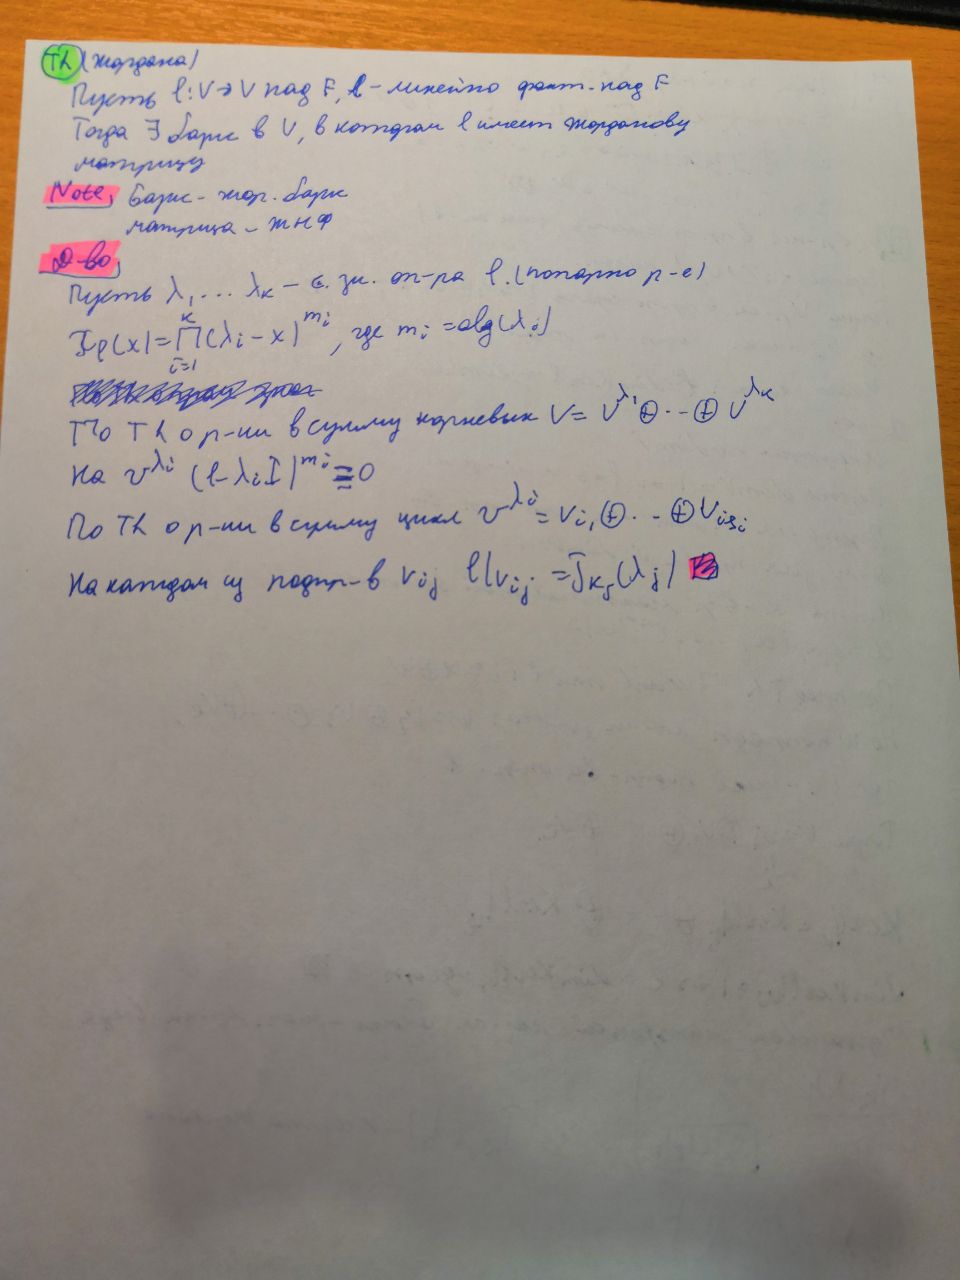 Th (Жордана)
Пусть l: V→V над F, l - линейно факт. над F
Тогда ∃ базис в V, в котором l имеет жорданову
матрицу
Note, Базис - жор. базис
матрица - ЖНФ
Д-во,
Пусть λ₁ ... λₖ - с. зн. оп-ра l. (попарно р-е)
(x) = ∏ᵢ₌₁ᵏ (λᵢ - x)^mᵢ, где mᵢ = alg(λᵢ)
По Th о р-ии в сумму корневых V = V^λ₁ ⊕ ... ⊕ V^λₖ
На V^λᵢ (l - λᵢI)^mᵢ ≡ 0
По Th о р-ии в сумму цикл V^λᵢ = Vᵢ₁ ⊕ ... ⊕ Vᵢsᵢ
На каждом из подпр-в Vᵢⱼ l|Vᵢⱼ = Jₖⱼ(λⱼ)